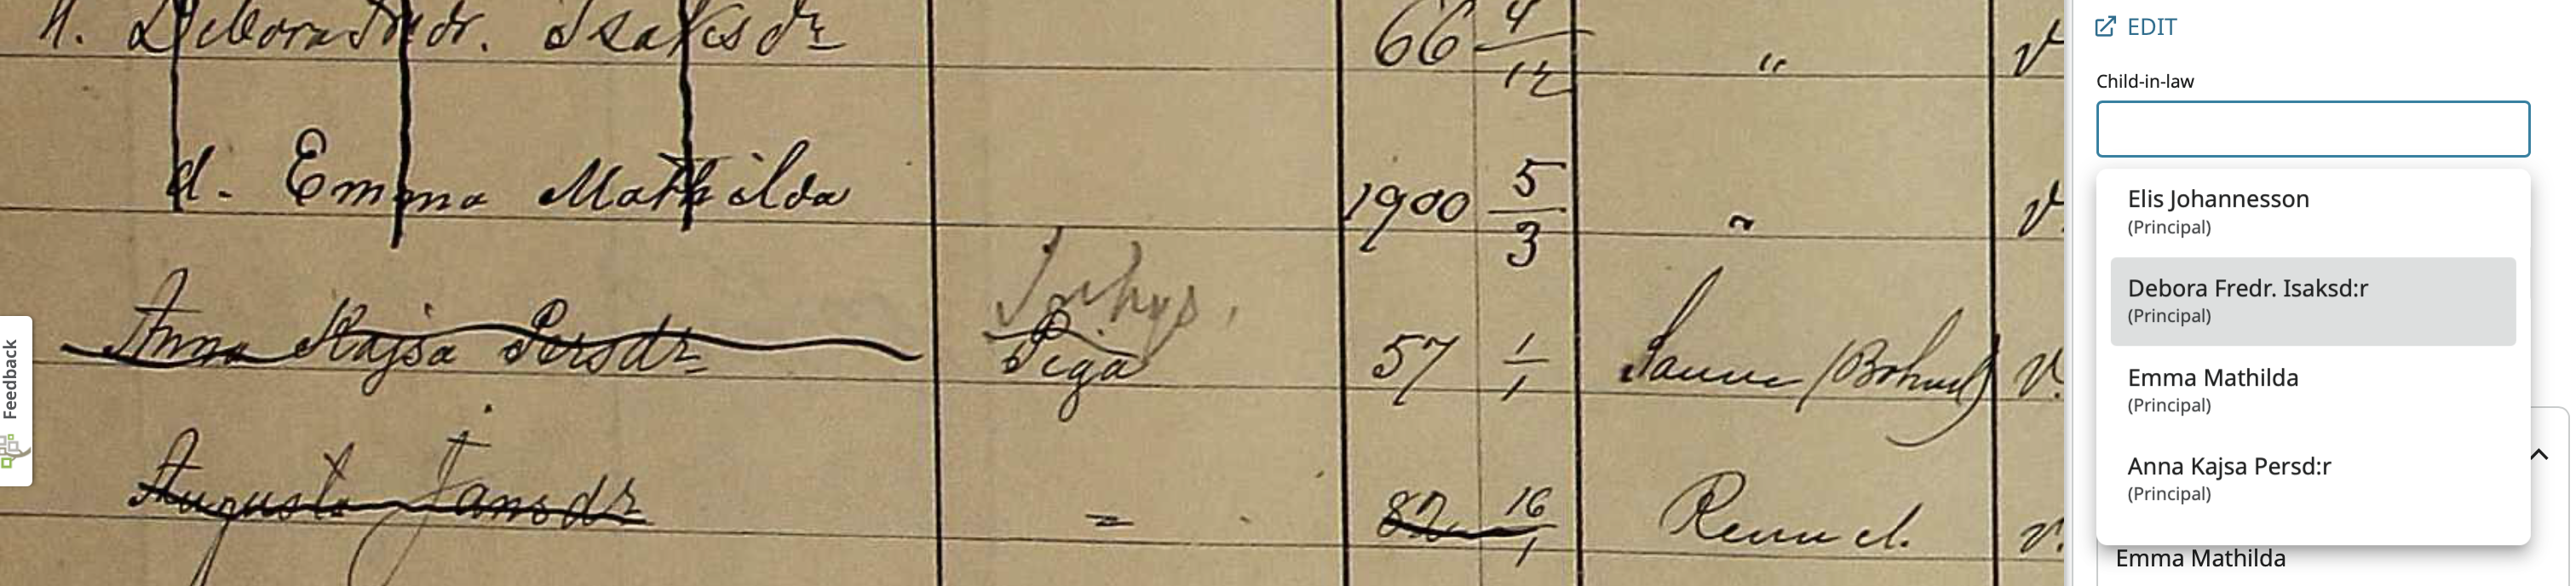 H. Debora Fredr. Isaksdr 66 4/12 "
d. Emma Mathilda 1900 5/3 "
Inhys.
Anna Kajsa Persdr Piga 57 1/1 Sanne (Bohusl) v.
Augusta Jansdr = 82 16/1 v.
Feedback
EDIT
Child-in-law
Elis Johannesson
(Principal)
Debora Fredr. Isaksd:r
(Principal)
Emma Mathilda
(Principal)
Anna Kajsa Persd:r
(Principal)
Emma Mathilda